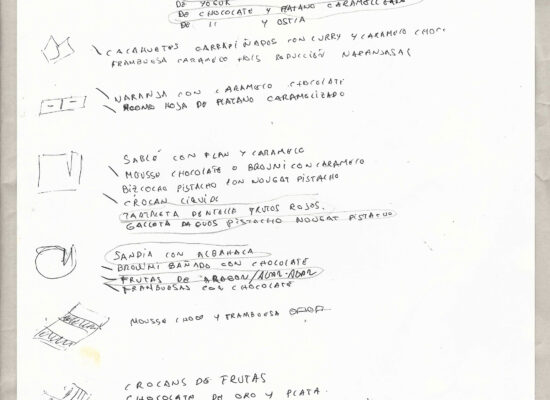 DE YOGUR
DE CHOCOLATE Y PLATANO CARAMELIZADO
DE 11 Y OSTIA
CACAHUETES GARRAPIÑADOS CON CURRY Y CARAMELO CHOC.
FRAMBUESA CARAMELO REDUCCIÓN NARANJAS
NARANJA CON CARAMELO CHOCOLATE
HOJA DE PLATANO CARAMELIZADO
SABLÉ CON FLAN Y CARAMELO
MOUSSE CHOCOLATE O BROWNI CON CARAMELO
BIZCOCHO PISTACHO CON NOUGAT PISTACHO
CROCAN LIQUIDO
TARTALETA FRUTOS ROJOS.
GALLETA PISTACHO NOUGAT PISTACHO
SANDIA CON ALBAHACA
BROWNI BAÑADO CON CHOCOLATE
FRUTAS DE ARAGON/
FRAMBUESAS CON CHOCOLATE
MOUSSE CHOCO Y FRAMBUESA
CROCANS DE FRUTAS
CHOCOLATA DE ORO Y PLATA.